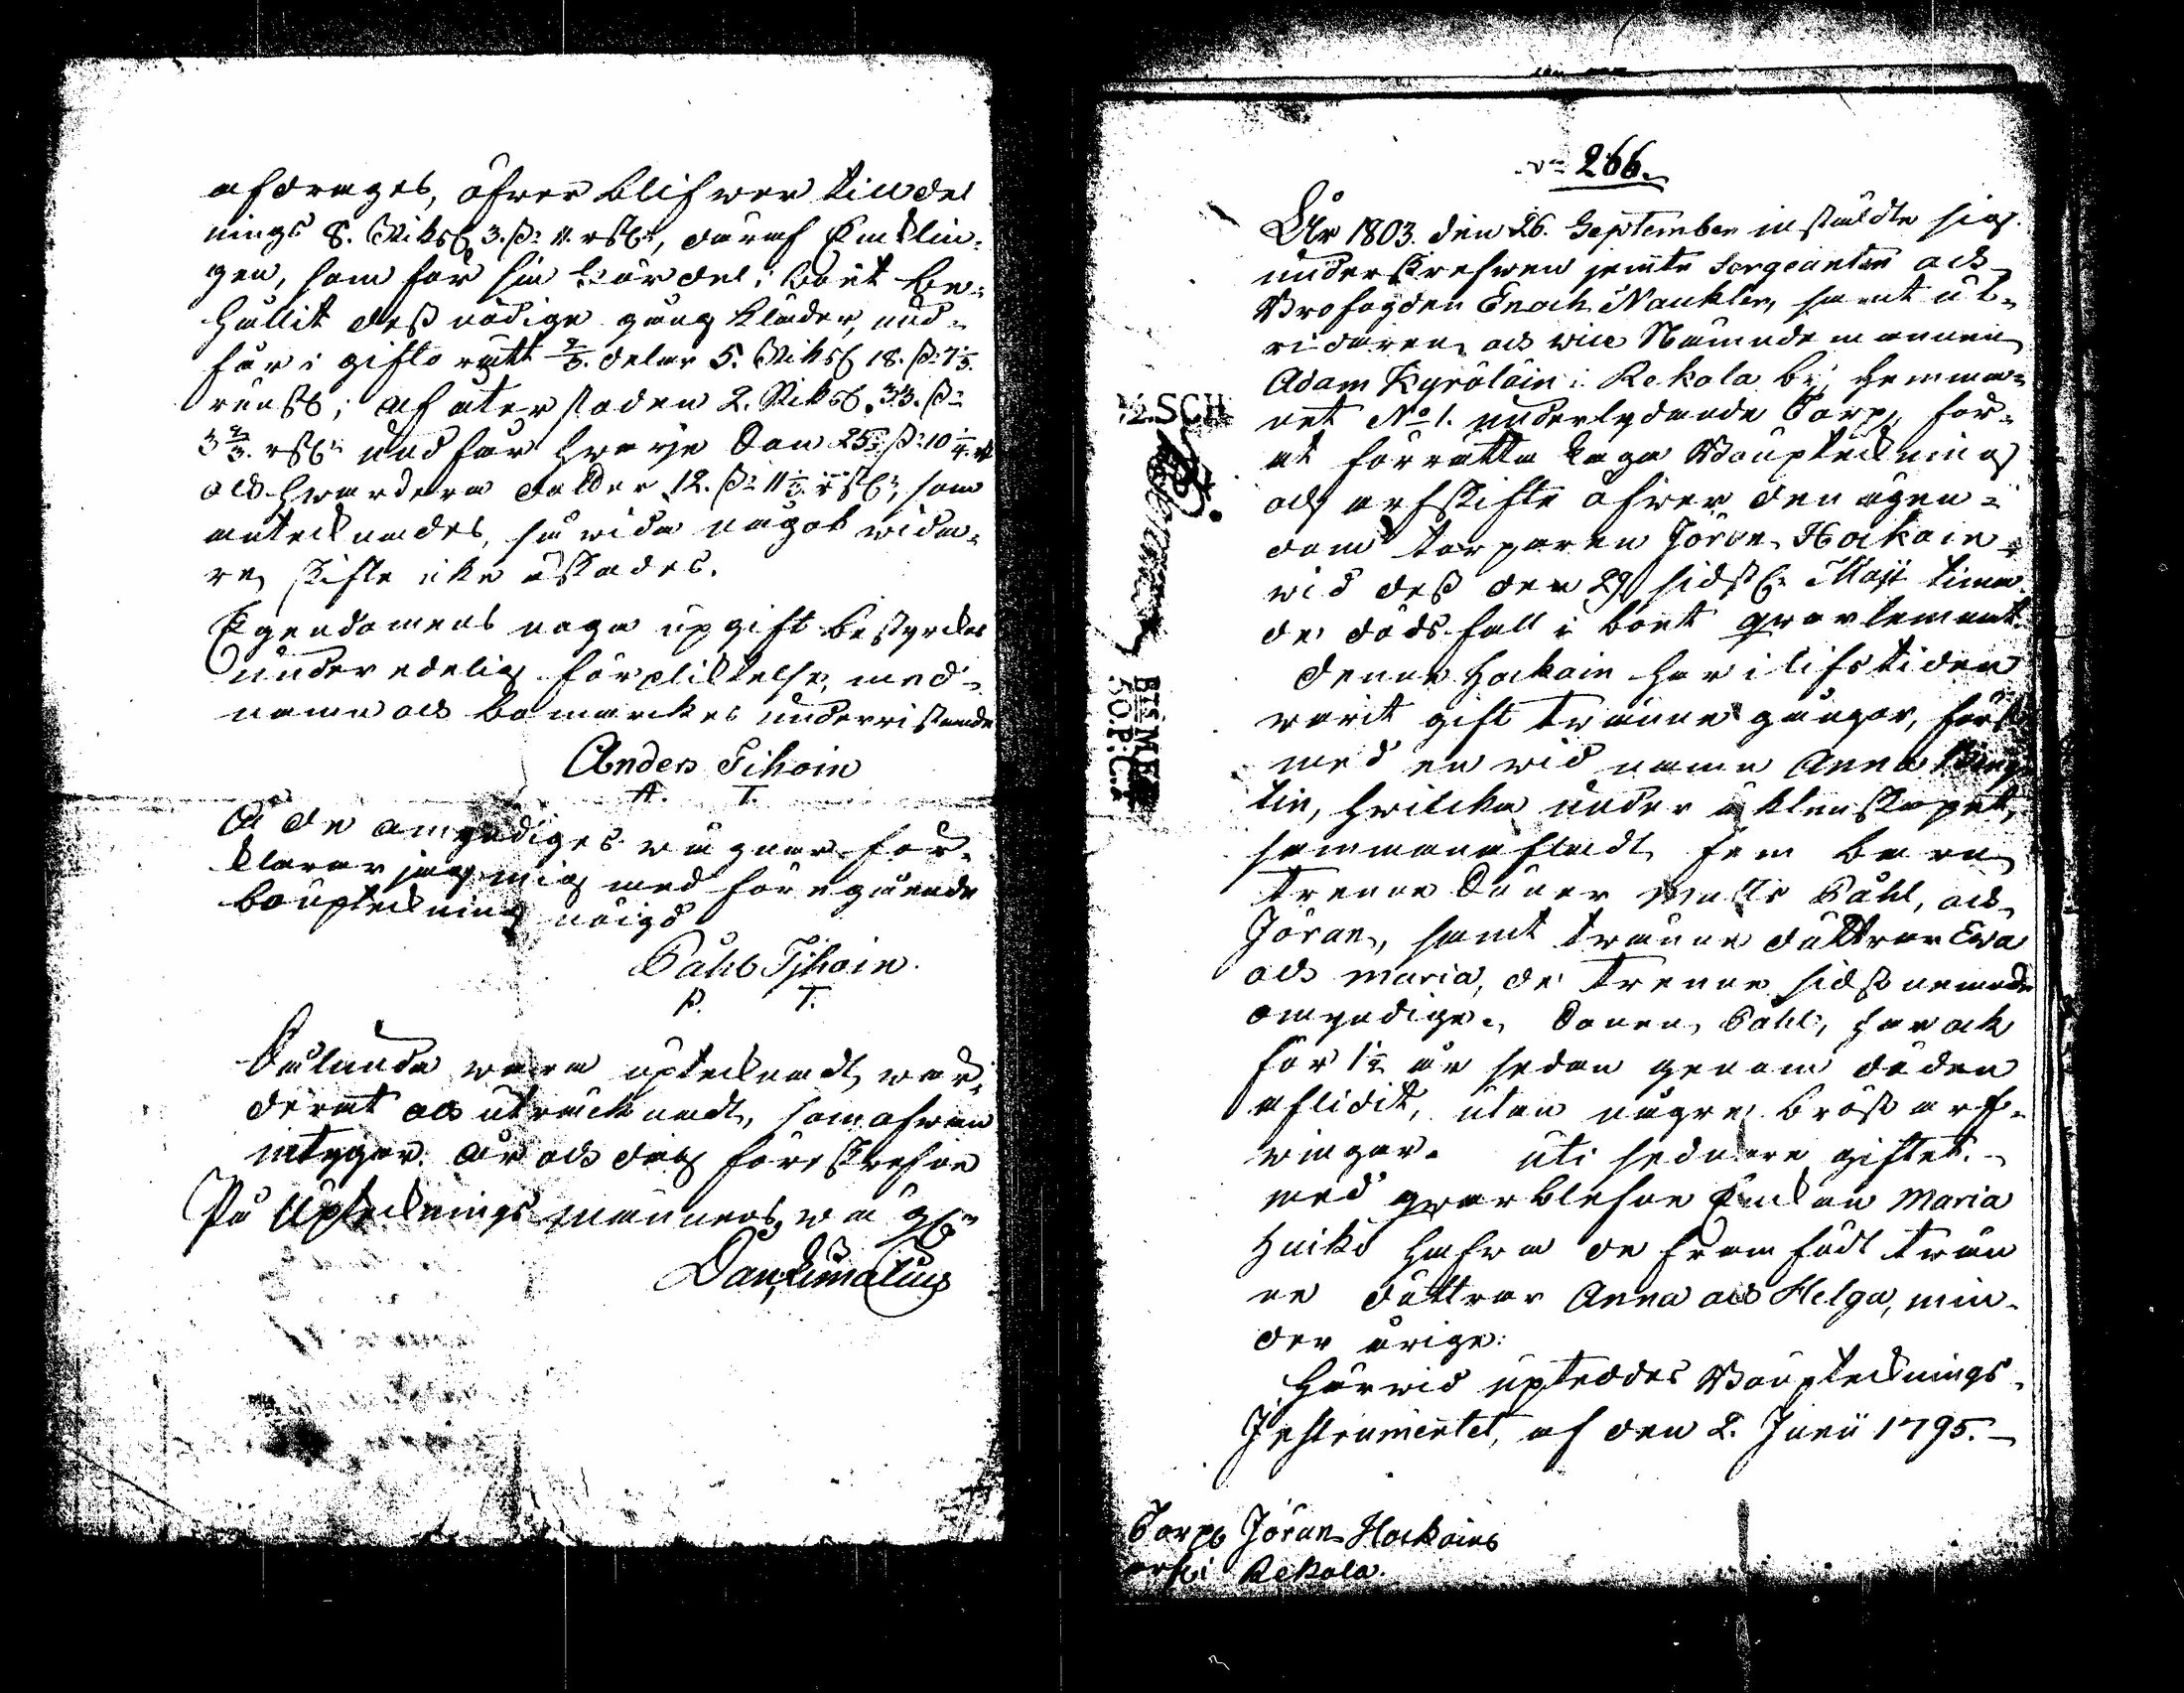 afdrages, öfver blifwer till del
nings 8. Riksd 3. ß: 11. rst:r, däraf Enklin¬
gen, som för sin fördel i boet be¬
hållit dess nödige gång kläder, und¬
får i gifto rätt 2/3. delar 5. Riksd 18. ß: 7 1/3.
runst; af återstoden 2. Riksd. 33. ß:
3 2/3. rst:r undfår hwarje Son 25. ß: 10
och hwardera dotter 12. ß: 11 rst:r, som
antecknades, så wida något wida¬
re skifte icke äskades.
Egendomens noga upgift bestyrckes
under edelig förpliktelse, med
namn och bomärckes underristande
Anders Tihoin
A. T.
På de omyndiges wägnar för¬
klarar jag mig med föregående
bouptekning nöigd
Påhl Tihoin.
P. T.
Sålunda wara uptecknadt, wär¬
derat och uträcknadt, som ofwan
intygar. År och dag förr skrefne
På Upteckningsmännens wägn:r
Dan: Limatius
No 266.
År 1803. den 26. September instälde sig
underskrefwen jemte Sergeanten och
Brofogden Enoch Nauklér, samt ut¬
ridaren och wice Nämndemannen
Adam Kyröläin i Rekola by hemma¬
net No 1. underlydande Torp, för
at förrätta laga Bouptekning
och arfskifte öfwer den ägen¬
dom torparen Jöran Hockain
wid dess den 29 sidstl: Maji tima¬
de dödsfall i boet qvarlemnat.
Denne Hockain har i lifstiden
warit gift twänne gånger, först
med en wid namn Anna
tin, hwilcka under äktenskapet,
sammanafladt fem barn
trenne Söner Matts Påhl, och
Jöran, samt twänne döttrar Ewa
och Maria, de trenne sidst nemnde
omyndige. Sonen Påhl, har ock
för 1½ år sedan genom döden
aflidit, utan några bröst arf¬
wingar. uti sednare giftet
med qwarblefne Enckan Maria
Huiko hafwa de framfödt twän
ne döttrar Anna och Helga, min¬
der årige:
Härwid upteddes Boupteknings
Instrumentet, af den 2. Junii 1795.
½. SCH
BISMF
50.P.C.
Torp: Jöran Hockains
arf: i Rekola.